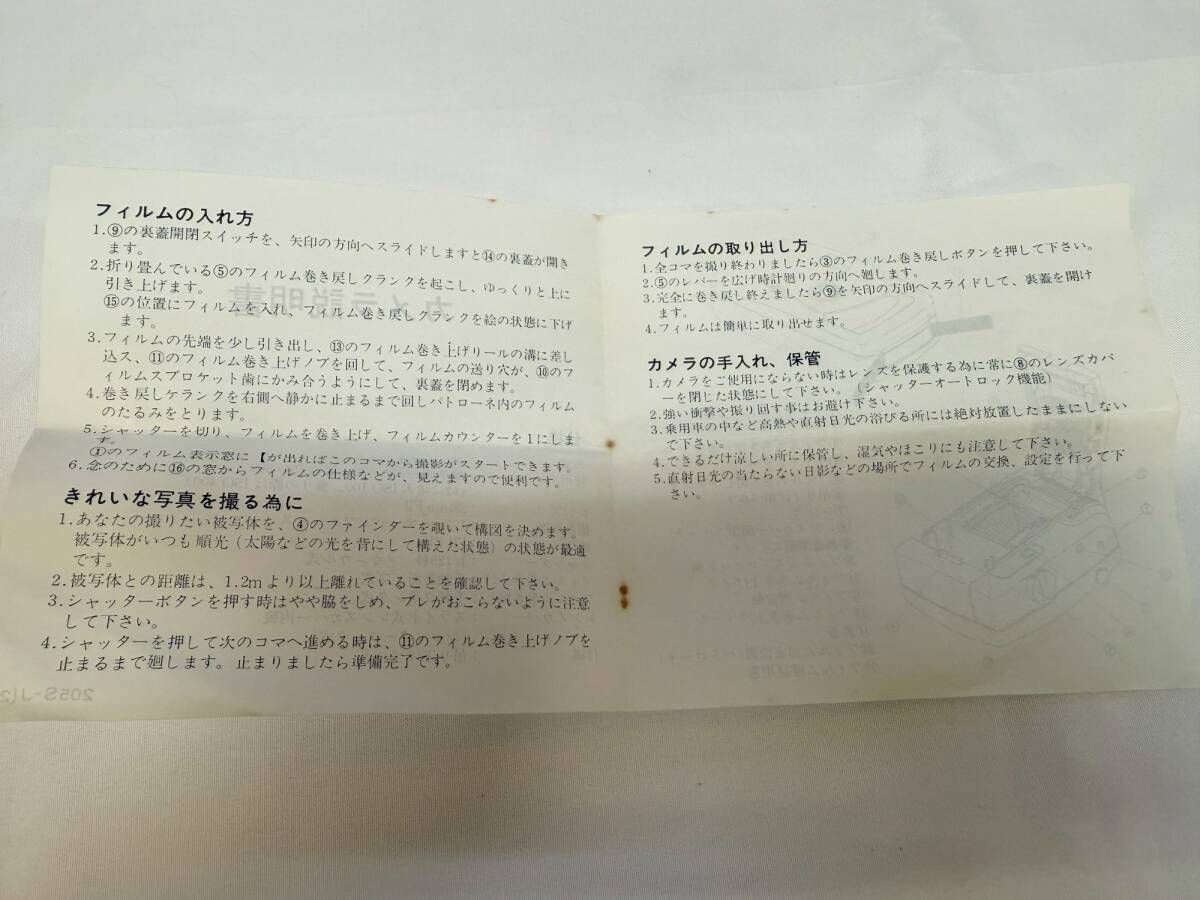 フィルムの入れ方
1.⑨の裏蓋開閉スイッチを、矢印の方向へスライドしますと⑭の裏蓋が開き
ます。
2.折り畳んでいる⑤のフィルム巻き戻しクランクを起こし、ゆっくりと上に
引き上げます。
⑮の位置にフィルムを入れ、フィルム巻き戻しクランクを絵の状態に下げ
ます。
3.フィルムの先端を少し引き出し、⑬のフィルム巻き上げリールの溝に差し
込ス、⑪のフィルム巻き上げノブを回して、フィルムの送り穴が、⑩のフ
ィルムスプロケット歯にかみ合うようにして、裏蓋を閉めます。
4.巻き戻しケランクを右側へ静かに止まるまで回しパトローネ内のフィルム
のたるみをとります。
5.シャッターを切り、フィルムを巻き上げ、フィルムカウンターを1にしま
す。
①のフィルム表示窓に【が出ればこのコマから撮影がスタートできます。
6.念のために⑯の窓からフィルムの仕様などが、見えますので便利です。
きれいな写真を撮る為に
1.あなたの撮りたい被写体を、④のファインダーを覗いて構図を決めます。
被写体がいつも順光(太陽などの光を背にして構えた状態)の状態が最適
です。
2.被写体との距離は、1.2mより以上離れていることを確認して下さい。
3.シャッターボタンを押す時はやや脇をしめ、ブレがおこらないように注意
して下さい。
4.シャッターを押して次のコマへ進める時は、⑪のフィルム巻き上げノブを
止まるまで廻します。止まりましたら準備完了です。
フィルムの取り出し方
1.全コマを撮り終わりましたら③のフィルム巻き戻しボタンを押して下さい。
2.⑤のレバーを広げ時計廻りの方向へ廻します。
3.完全に巻き戻し終えましたら⑨を矢印の方向へスライドして、裏蓋を開け
ます。
4.フィルムは簡単に取り出せます。
カメラの手入れ、保管
1.カメラをご使用にならない時はレンズを保護する為に常に⑧のレンズカバ
ーを閉じた状態にして下さい。(シャッターオートロック機能)
2.強い衝撃や振り回す事はお避け下さい。
3.乗用車の中など高熱や直射日光の浴びる所には絶対放置したままにしない
で下さい。
4.できるだけ涼しい所に保管し、湿気やほこりにも注意して下さい。
5.直射日光の当たらない日影などの場所でフィルムの交換、設定を行って下
さい。
カメラ説明書
205S-J(2